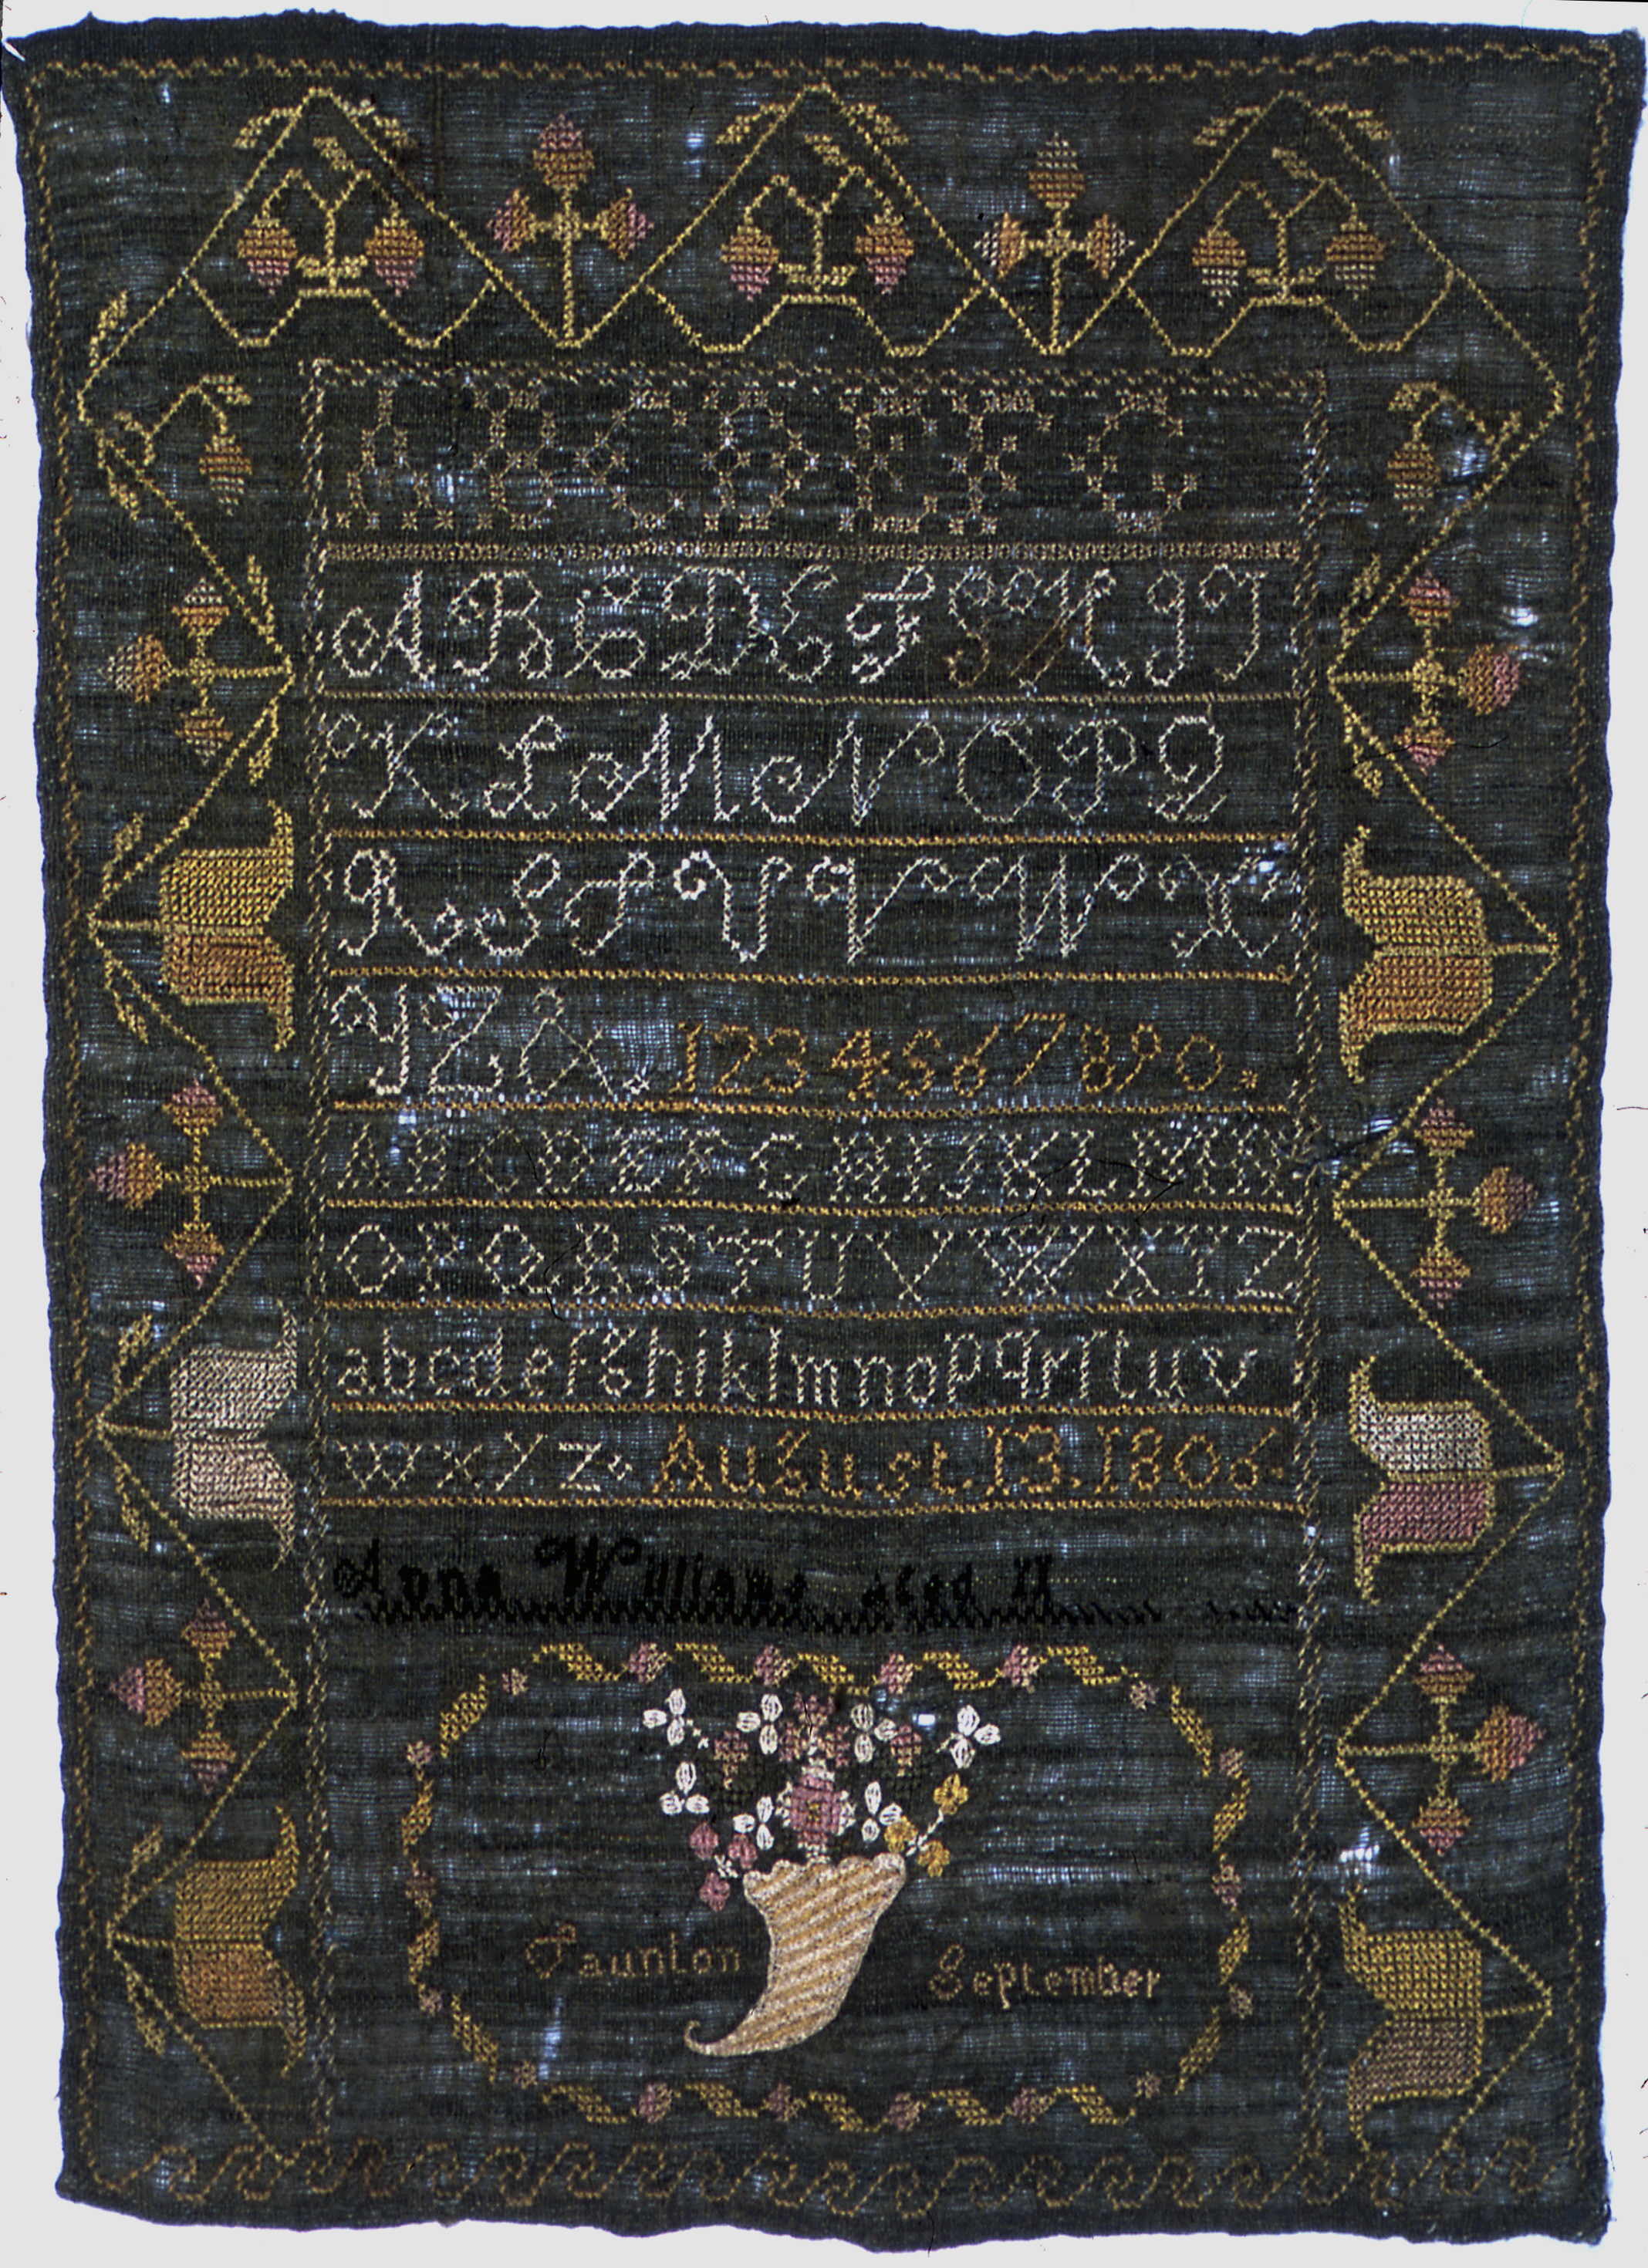 A B C D E F G
A B C D E F G H I J
K L M N O P Q
R S T U V W X
Y Z & . 1 2 3 4 5 6 7 8 9 0 .
A B C D E F G H I J K L M N
O P Q R S T U V W X Y Z
a b c d e f g h i k l m n o p q r ſ t u v
w x y z . August . 13 . 1806 .
Anna Williams aged 11
Taunton September